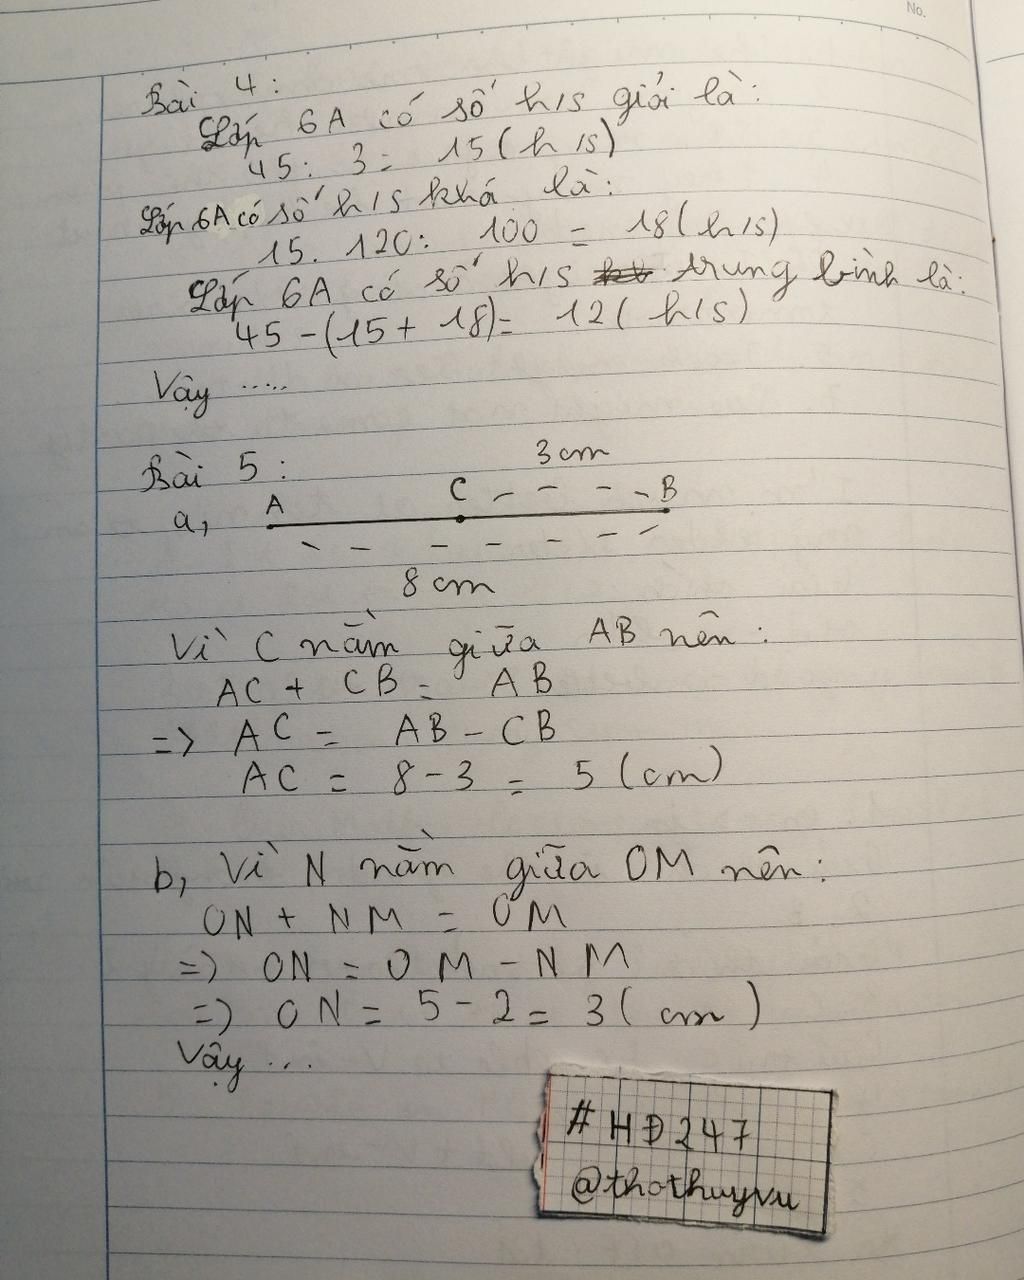 No.
Bài 4:
Lớp 6A có số h/s giỏi là:
45: 3= 15(h/s)
Lớp 6A có số h/s khá là:
15. 120: 100 = 18(h/s)
Lớp 6A có số h/s trung bình là:
45-(15+18)= 12( h/s)
Vậy .....
Bài 5:
3 cm
A C B
a,
8 cm
Vì C nằm giữa AB nên:
AC + CB = AB
=> AC = AB - CB
AC = 8-3 = 5 (cm)
b, Vì N nằm giữa OM nên:
ON + NM = OM
=) ON = OM - NM
=) ON = 5 - 2 = 3( cm )
Vậy ...
# HĐ247
@thothuyvu